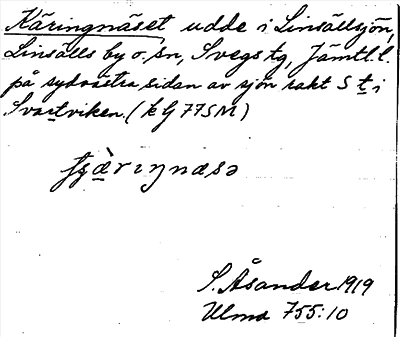 Käringnäset udde i Linsällsjön,
Linsälls by o. sn, Svegs tg, Jämtl. l.
på sydvästra sidan av sjön rakt S t i
Svartviken. (k G 77 S M)
S. Åsander 1919
Ulma 755:10